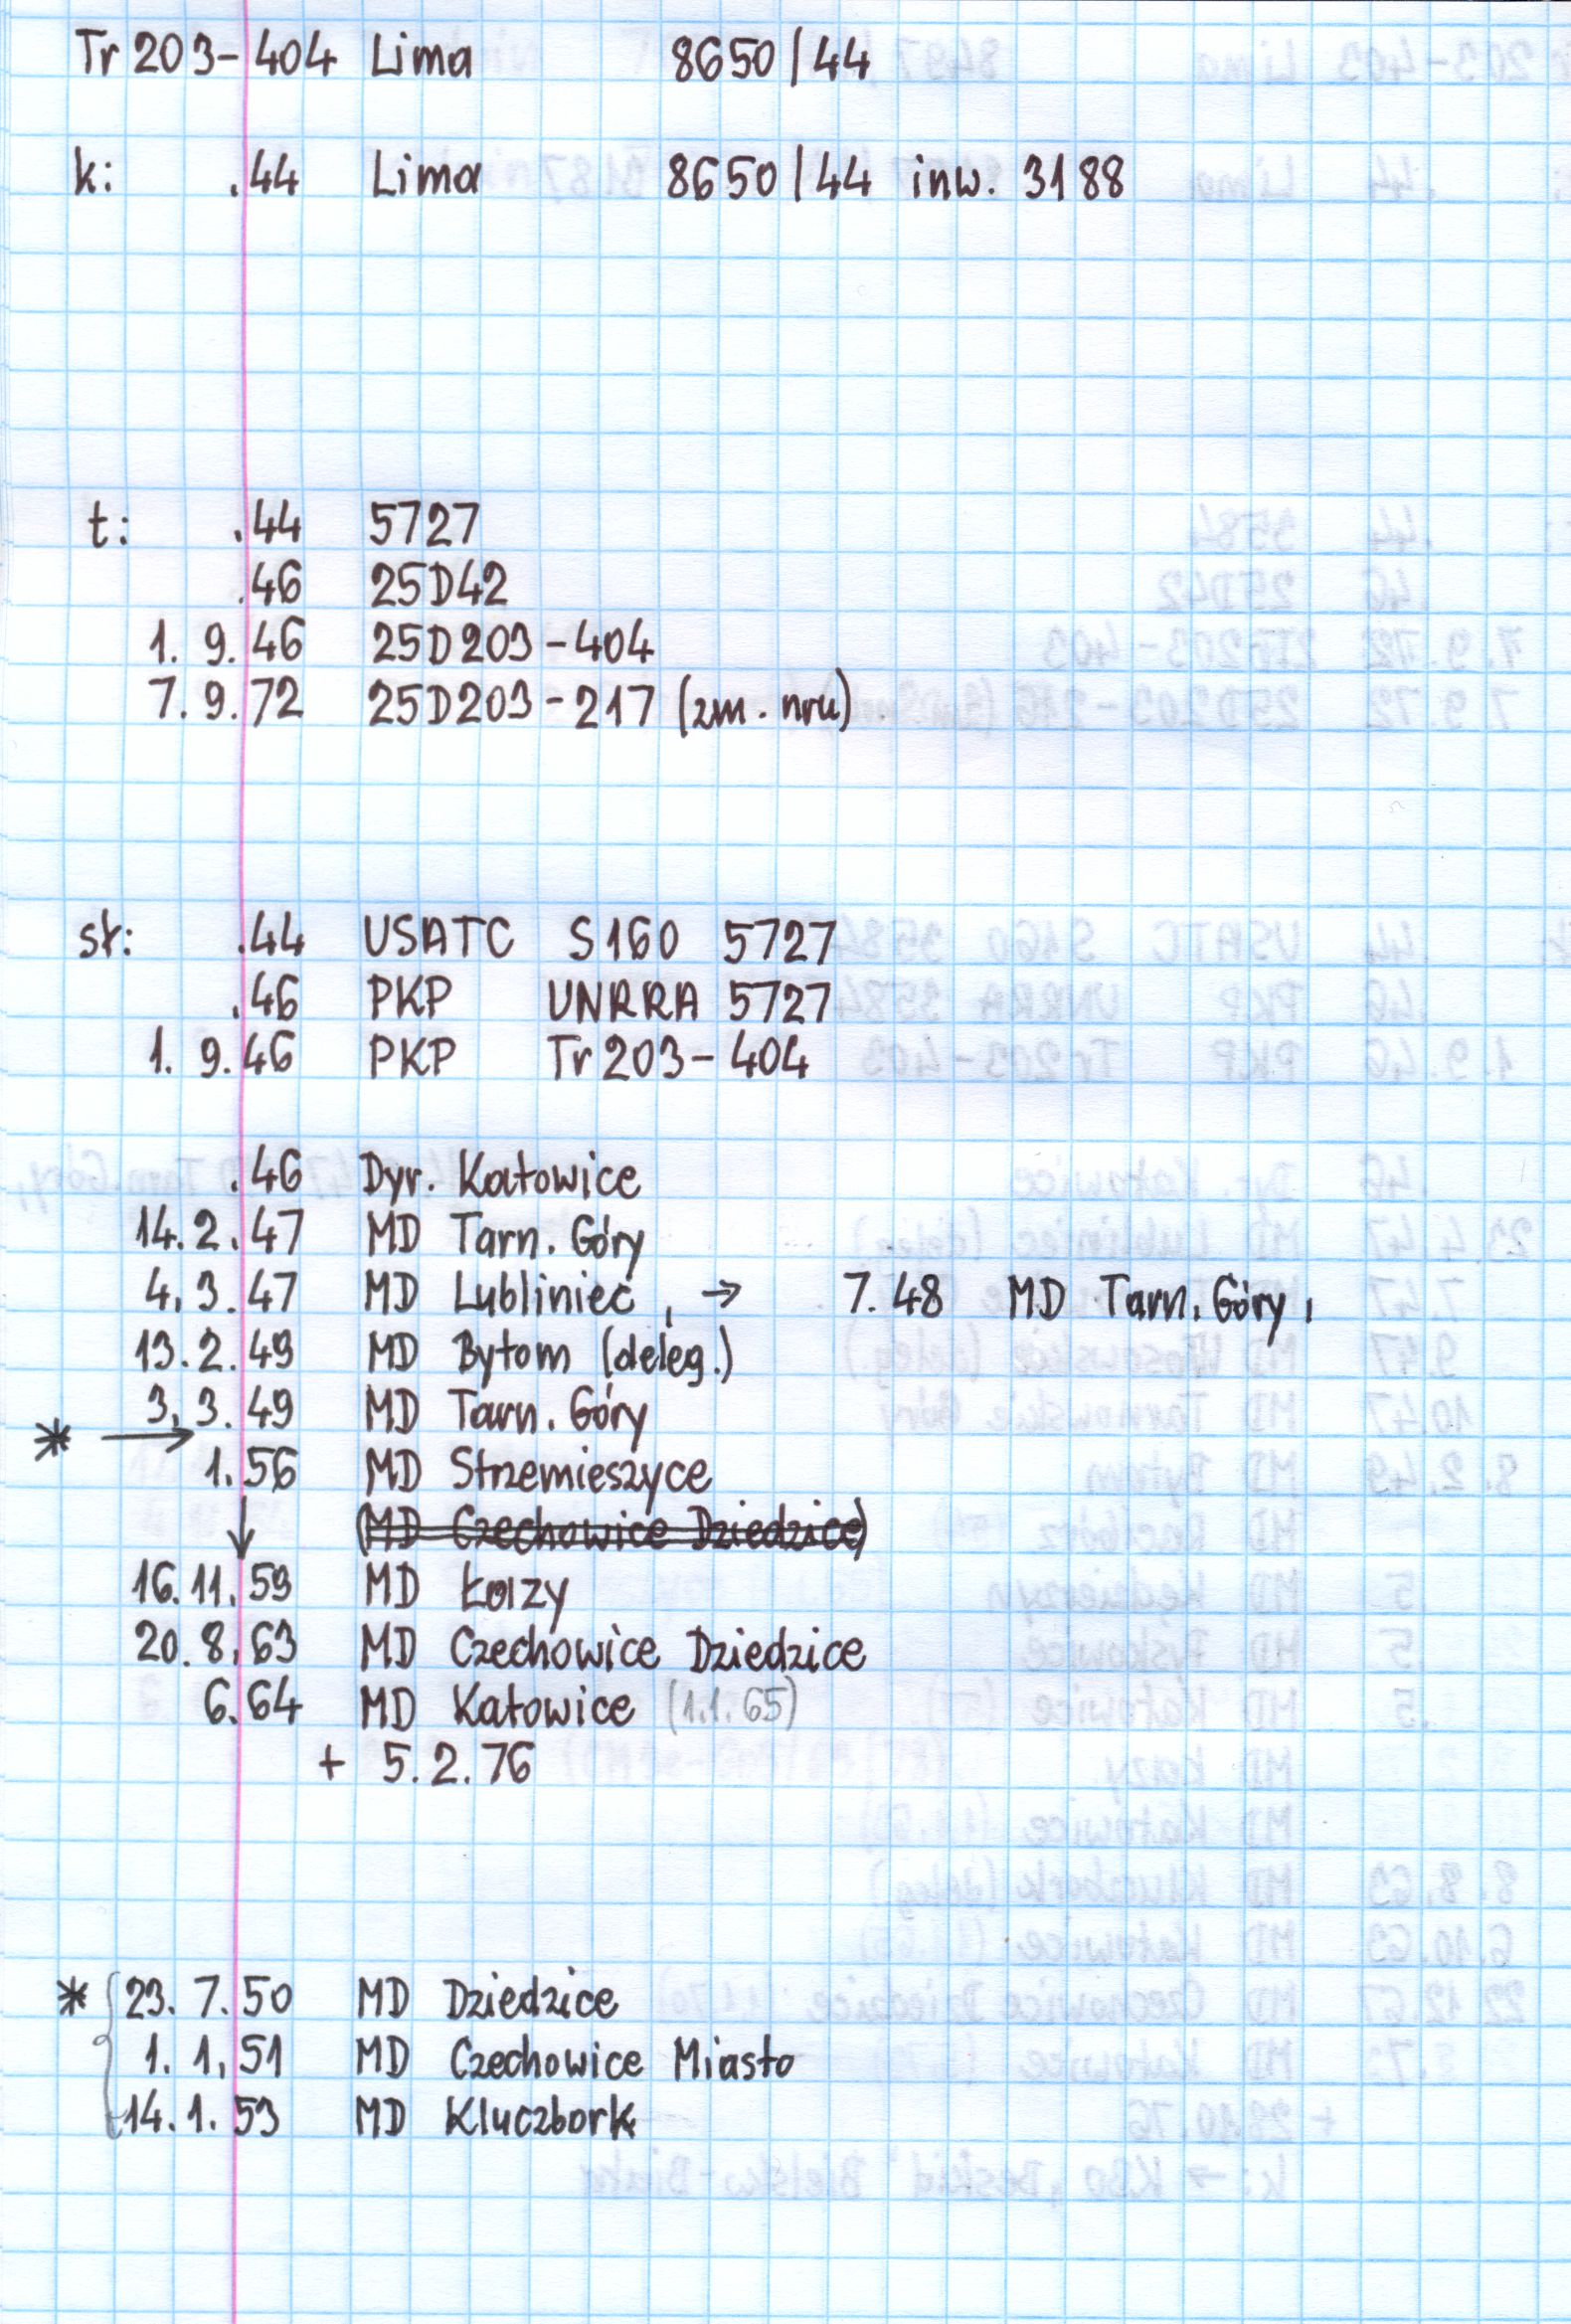 Tr 203-404 Lima 8650/44
k: .44 Lima 8650/44 inw. 3188
t: .44 5727
.46 25D42
1. 9.46 25D203-404
7. 9.72 25D203-217 (zm. nru)
st: .44 USATC S160 5727
.46 PKP UNRRA 5727
1. 9.46 PKP Tr203-404
.46 Dyr. Katowice
14.2.47 MD Tarn. Góry
4.3.47 MD Lubliniec, → 7.48 MD Tarn. Góry,
13.2.49 MD Bytom (deleg.)
3.3.49 MD Tarn. Góry
* →
1.56 MD Strzemieszyce
↓ (MD Czechowice Dziedzice)
16.11.59 MD Łazy
20.8.63 MD Czechowice Dziedzice
6.64 MD Katowice (1.1.65)
+ 5.2.76
* { 23. 7.50 MD Dziedzice
1. 1.51 MD Czechowice Miasto
14.1.53 MD Kluczbork